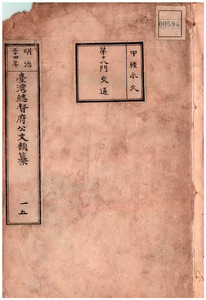 00594
甲種永久
第十八門交通
明治
三十四年
臺灣總督府公文類纂
一五